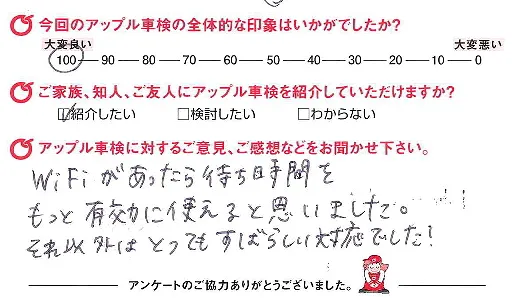 今回のアップル車検の全体的な印象はいかがでしたか?
大変良い 大変悪い
100 90 80 70 60 50 40 30 20 10 0
ご家族、知人、ご友人にアップル車検を紹介していただけますか?
☑紹介したい □検討したい □わからない
アップル車検に対するご意見、ご感想などをお聞かせ下さい。
WiFiがあったら待ち時間を
もっと有効に使えると思いました。
それ以外はとってもすばらしい対応でした!
アンケートのご協力ありがとうございました。